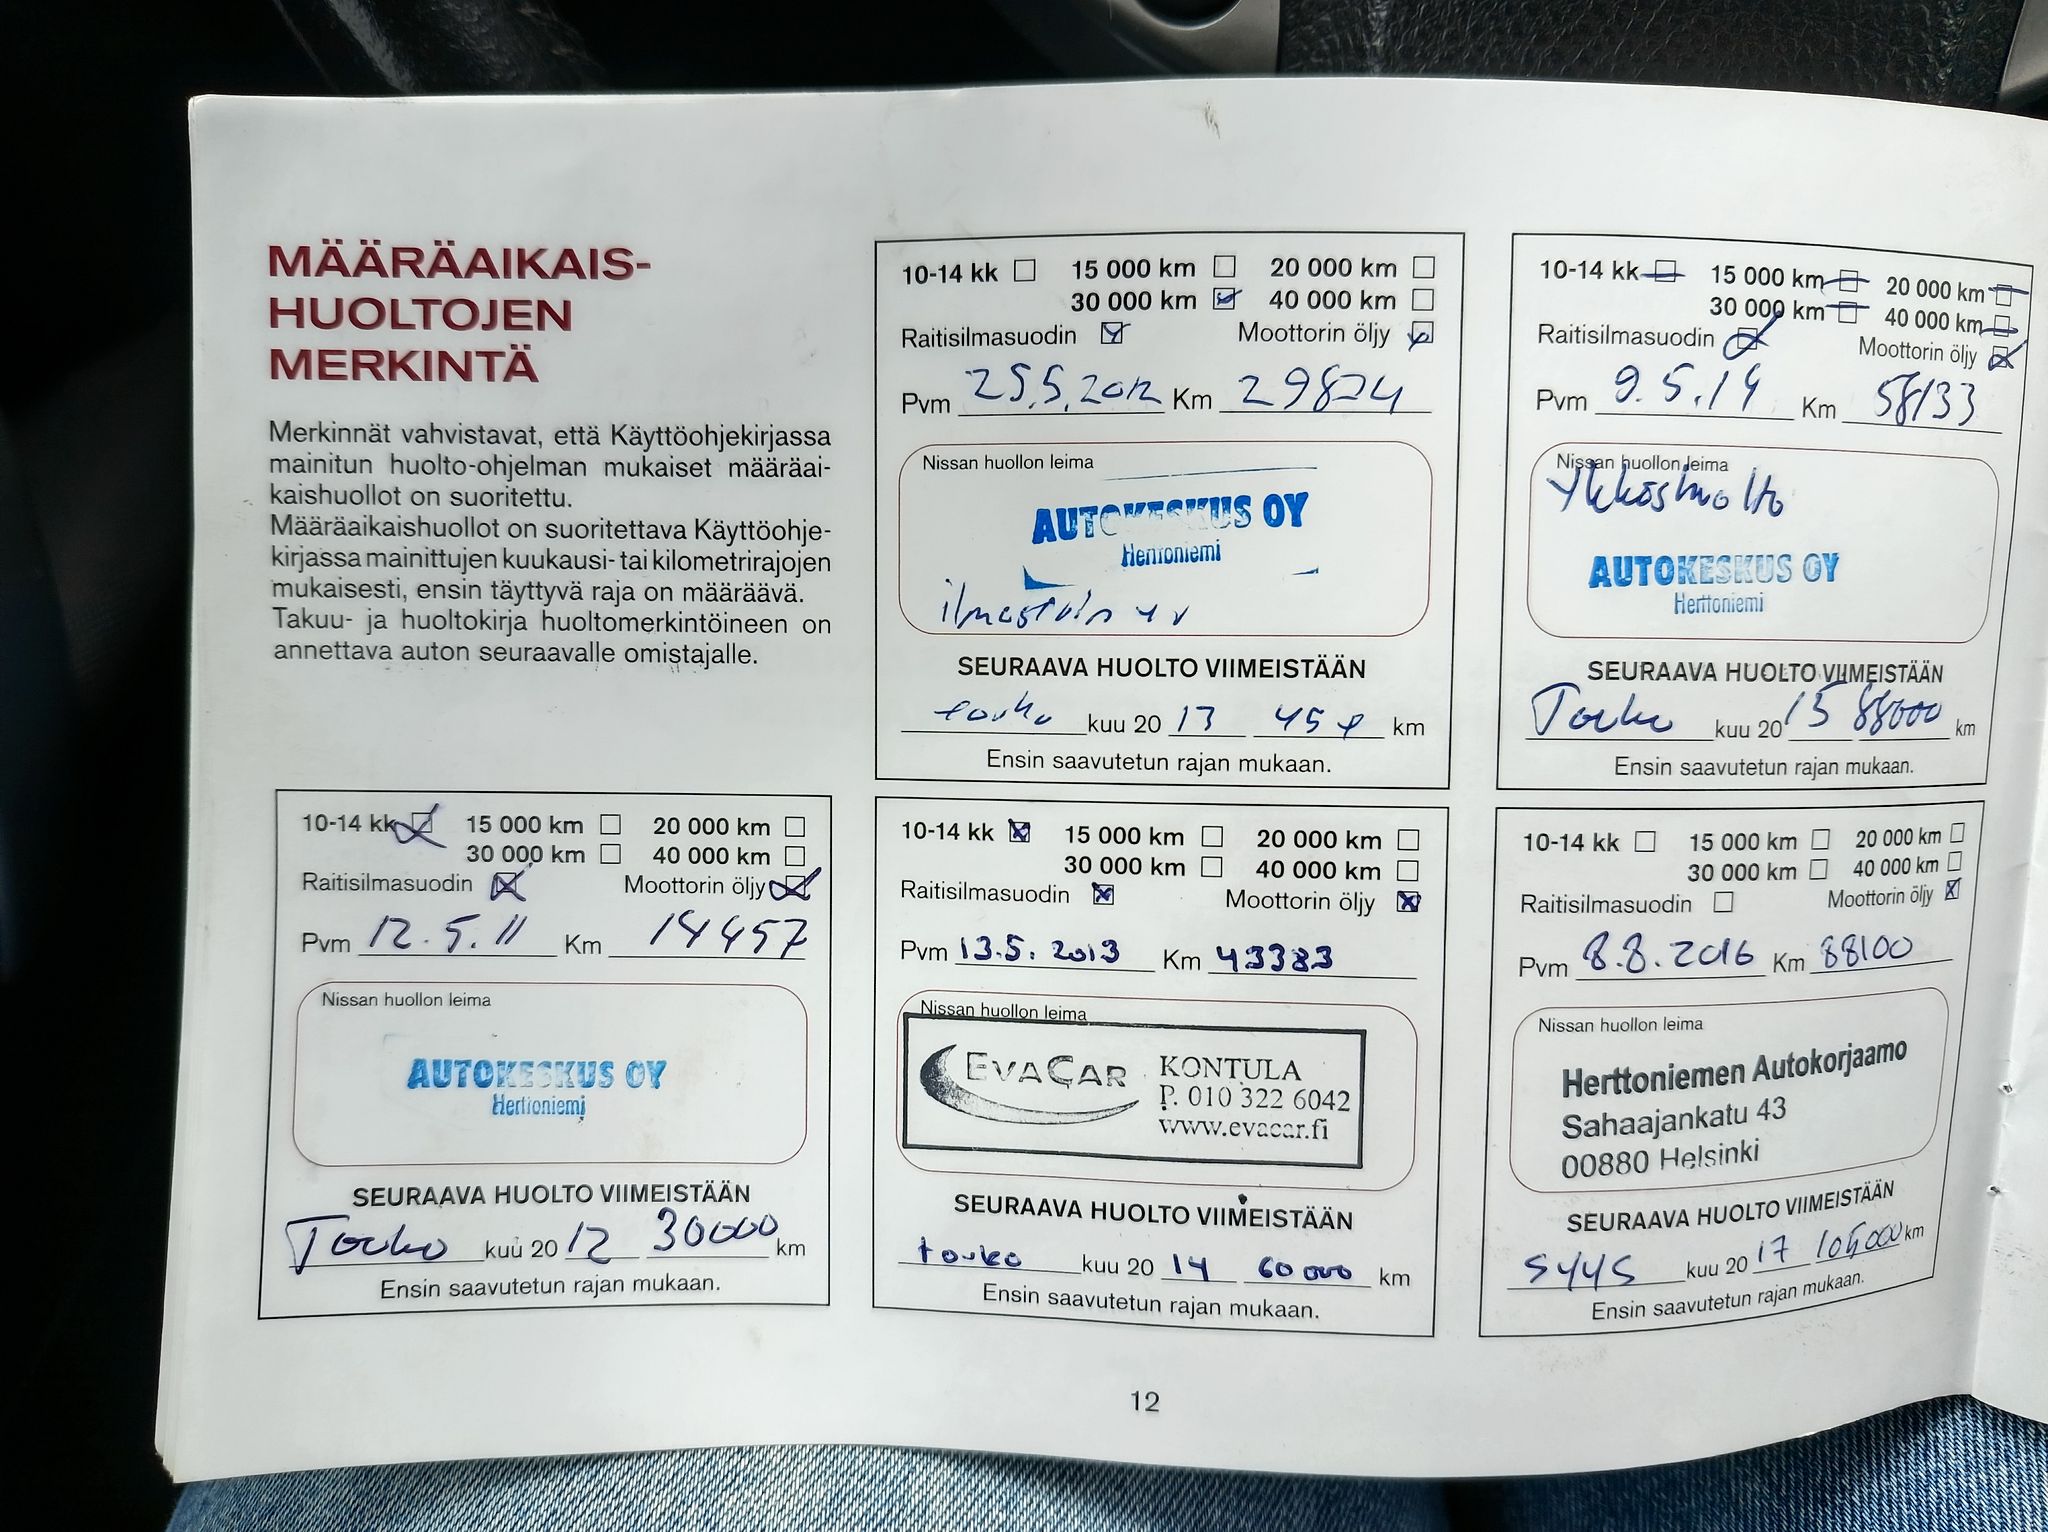 MÄÄRÄAIKAIS-
HUOLTOJEN
MERKINTÄ
Merkinnät vahvistavat, että Käyttöohjekirjassa
mainitun huolto-ohjelman mukaiset määräai-
kaishuollot on suoritettu.
Määräaikaishuollot on suoritettava Käyttöohje-
kirjassa mainittujen kuukausi- tai kilometrirajojen
mukaisesti, ensin täyttyvä raja on määräävä.
Takuu- ja huoltokirja huoltomerkintöineen on
annettava auton seuraavalle omistajalle.
10-14 kk 15 000 km 20 000 km
30 000 km 40 000 km
Raitisilmasuodin Moottorin öljy
Pvm 12.5.11 Km 14457
Nissan huollon leima
AUTOKESKUS OY
Herttoniemi
SEURAAVA HUOLTO VIIMEISTÄÄN
Touko kuu 2012 30000 km
Ensin saavutetun rajan mukaan.
10-14 kk 15 000 km 20 000 km
30 000 km 40 000 km
Raitisilmasuodin Moottorin öljy
Pvm 25.5.2012 Km 29824
Nissan huollon leima
AUTOKESKUS OY
Herttoniemi
SEURAAVA HUOLTO VIIMEISTÄÄN
touko kuu 2013 45 km
Ensin saavutetun rajan mukaan.
10-14 kk 15 000 km 20 000 km
30 000 km 40 000 km
Raitisilmasuodin Moottorin öljy
Pvm 13.5.2013 Km 43383
Nissan huollon leima
EVACAR KONTULA
P. 010 322 6042
www.evacar.fi
SEURAAVA HUOLTO VIIMEISTÄÄN
touko kuu 2014 60000 km
Ensin saavutetun rajan mukaan.
10-14 kk 15 000 km 20 000 km
30 000 km 40 000 km
Raitisilmasuodin Moottorin öljy
Pvm 9.5.14 Km 58133
Nissan huollon leima
Ykköshuolto
AUTOKESKUS OY
Herttoniemi
SEURAAVA HUOLTO VIIMEISTÄÄN
Touko kuu 2015 88000 km
Ensin saavutetun rajan mukaan.
10-14 kk 15 000 km 20 000 km
30 000 km 40 000 km
Raitisilmasuodin Moottorin öljy
Pvm 8.8.2016 Km 88100
Nissan huollon leima
Herttoniemen Autokorjaamo
Sahaajankatu 43
00880 Helsinki
SEURAAVA HUOLTO VIIMEISTÄÄN
SYYS kuu 2017 km
Ensin saavutetun rajan mukaan.
12